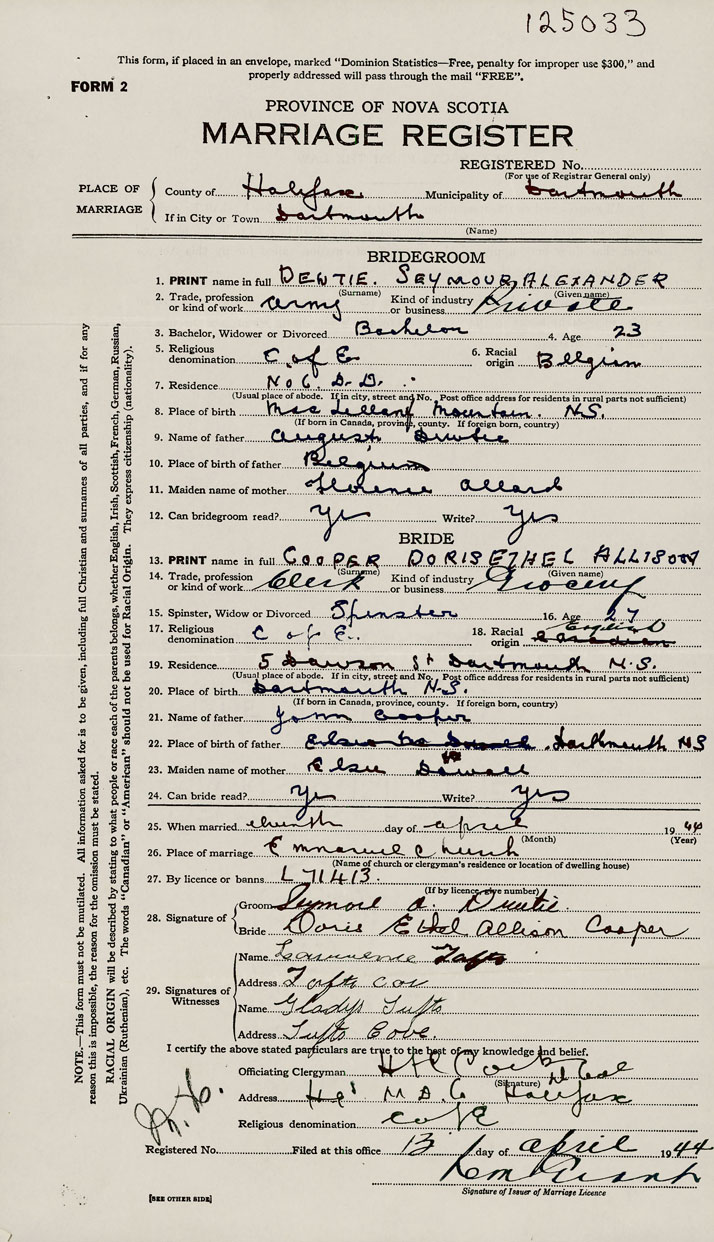 125033
This form, if placed in an envelope, marked "Dominion Statistics—Free, penalty for improper use $300," and
properly addressed will pass through the mail "FREE".
FORM 2
PROVINCE OF NOVA SCOTIA
MARRIAGE REGISTER
REGISTERED No.
(For use of Registrar General only)
PLACE OF MARRIAGE
County of Halifax Municipality of Dartmouth
If in City or Town Dartmouth
(Name)
BRIDEGROOM
1. PRINT name in full DEWTIE. SEYMOUR, ALEXANDER
(Surname) (Given name)
2. Trade, profession or kind of work Army Kind of industry or business Private
3. Bachelor, Widower or Divorced Bachelor 4. Age 23
5. Religious denomination C. of E. 6. Racial origin Bellgian
7. Residence No 6. D.D.
(Usual place of abode. If in city, street and No. Post office address for residents in rural parts not sufficient)
8. Place of birth Mac Lellans Mountain. N.S.
(If born in Canada, province, county. If foreign born, country)
9. Name of father August Dewtie
10. Place of birth of father Belgium
11. Maiden name of mother Florence Allard
12. Can bridegroom read? Yes Write? Yes
BRIDE
13. PRINT name in full COOPER DORIS ETHEL ALLISON
(Surname) (Given name)
14. Trade, profession or kind of work Clerk Kind of industry or business Grocery
15. Spinster, Widow or Divorced Spinster 16. Age 27
17. Religious denomination C of E. 18. Racial origin English Canadian
19. Residence 5 Dawson St Dartmouth N.S.
(Usual place of abode. If in city, street and No. Post office address for residents in rural parts not sufficient)
20. Place of birth Dartmouth N.S.
(If born in Canada, province, county. If foreign born, country)
21. Name of father John Cooper
22. Place of birth of father Dartmouth NS
23. Maiden name of mother Elsie Dowall
24. Can bride read? Yes Write? Yes
25. When married day of April 1944
(Month) (Year)
26. Place of marriage Emmanuel Church
(Name of church or clergyman's residence or location of dwelling house)
27. By licence or banns L 71413.
(If by licence, give number)
28. Signature of
Groom Seymour A. Dewtie.
Bride Doris Ethel Allison Cooper
29. Signatures of Witnesses
Name Lawrence Tufts
Address Tufts Cove
Name Gladys Tufts
Address Tufts Cove.
I certify the above stated particulars are true to the best of my knowledge and belief.
Officiating Clergyman
(Signature)
Address Hq M.D. 6 Halifax
Religious denomination C of E
Registered No. Filed at this office 13 day of April 1944
Signature of Issuer of Marriage Licence
[SEE OTHER SIDE]
NOTE.—This form must not be mutilated. All information asked for is to be given, including full Christian and surnames of all parties, and if for any
reason this is impossible, the reason for the omission must be stated.
RACIAL ORIGIN will be described by stating to what people or race each of the parents belongs, whether English, Irish, Scottish, French, German, Russian,
Ukrainian (Ruthenian), etc. The words "Canadian" or "American" should not be used for Racial Origin. They express citizenship (nationality).